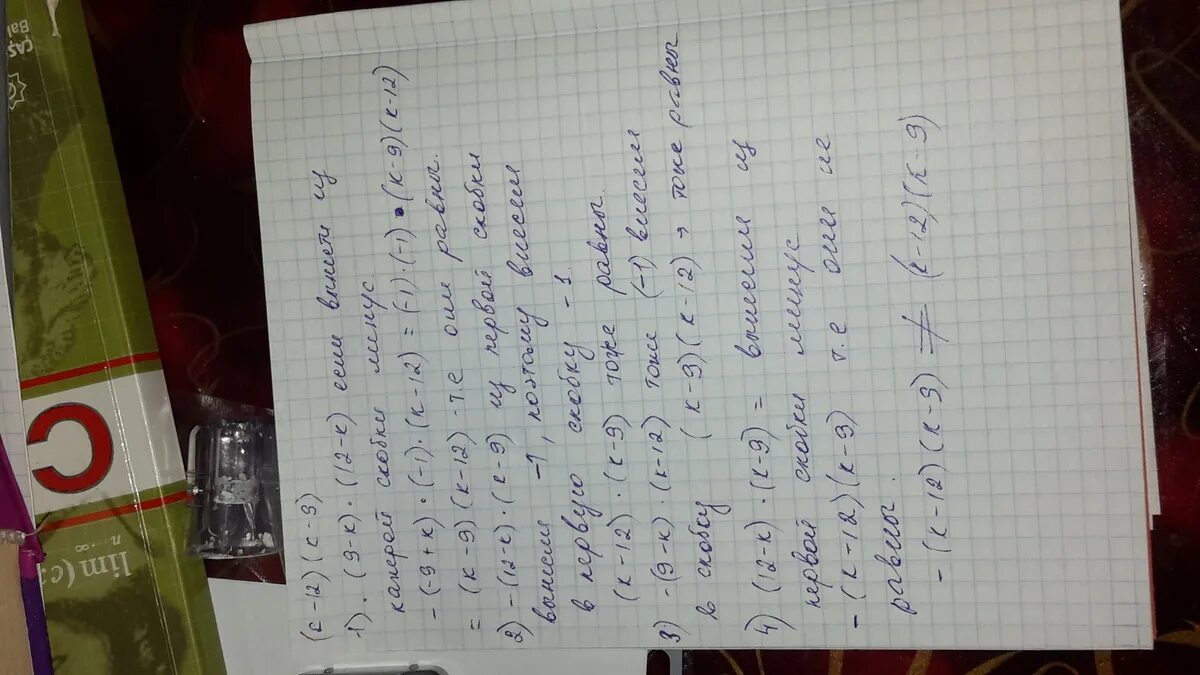 (к-12)(к-9)
1). (9-к)·(12-к) если вынести из
каждой скобки минус
-(-9+к)·(-1)·(к-12) = (-1)·(-1)·(к-9)(к-12)
= (к-9)(к-12) - т.е они равны.
2) -(12-к)·(к-9) из первой скобки
вынесем -1, поэтому внесем
в первую скобку -1.
(к-12)·(к-9) тоже равны.
3) -(9-к)·(к-12) тоже (-1) внесем
в скобку (к-9)(к-12) → тоже равны
4) (12-к)·(к-9) = вынесем из
первой скобки минус
-(к-12)(к-9) т.е они не
равны.
-(к-12)(к-9) ≠ (к-12)(к-9)
C
lim (c
n → ∞
CAS
Ba